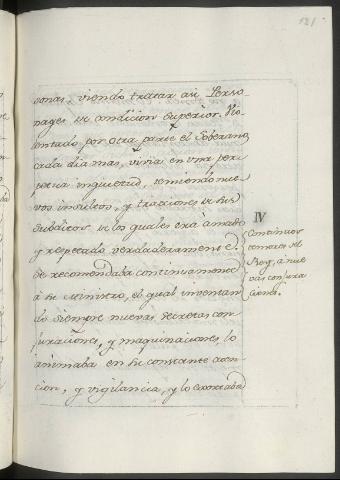 121
sonas, viendo tratar asi Perso
nages de condicion superior. Vio
lentado por otra parte el Soberano
cada dia mas, vivia en una per
petua inquietud, temiendo nue
vos insultos, y traiciones de sus
subditos, de los quales era amado
y respetado verdaderamente.
Se recomendaba continuamente
à su Ministro, el qual inventan
do siempre nuevas secretas con
juraciones, y maquinaciones, lo
animaba en su constante aten
cion, y vigilancia, y lo exortaba
IV
Continuos
temores del
Rey, à nue
vas conjura
ciones.